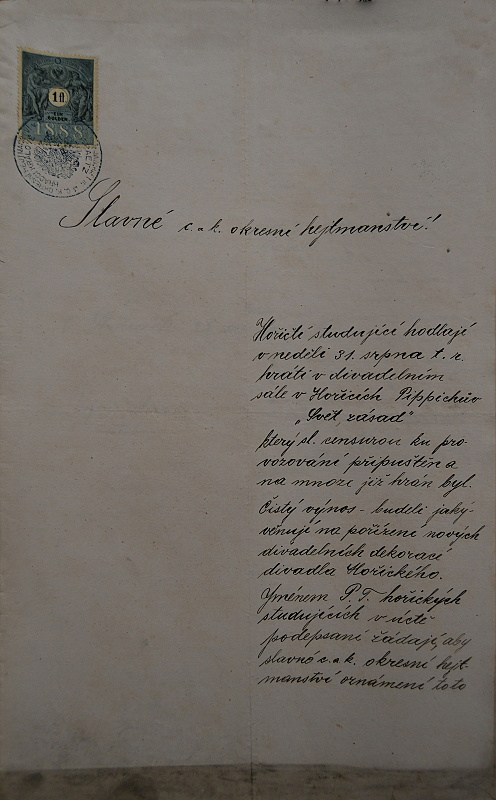 1 fl
EIN
GULDEN
1888
Slavné c. a k. okresní hejtmanství!
Hořičtí studující hodlají
v neděli 31. srpna t. r.
hráti v divadelním
sále v Hořicích Pippichův
„Svět zásad"
který sl. censurou ku pro-
vozování připuštěn a
na mnoze již hrán byl.
Čistý výnos - budeli jaký-
věnují na pořízení nových
divadelních dekorací
divadla Hořického.
Jménem P. T. hořických
studujících v úctě
podepsaní žádají, aby
slavné c. a k. okresní hejt-
manství oznámení toto